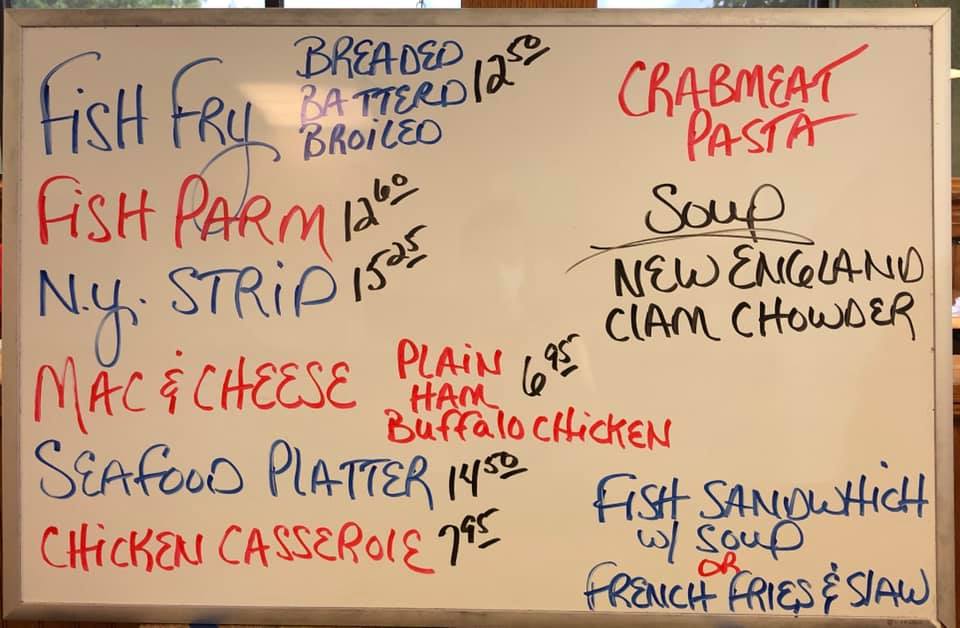 FiSH FRy BREADED
BATTERD 12 50
BROiLED
FiSH PARM 12 60
N.y. STRiP 15 25
MAC & CHEESE PLAiN 6 95
HAM
Buffalo CHiCKEN
SEAfOOD PLATTER 14 50
CHiCKEN CASSEROlE 7 95
CRABMEAT
PASTA
Soup
NEW ENGLAND
ClAM CHOWDER
FiSH SANDWHiCH
w/ SOUP
OR
FRENCH FRiES & SlAW